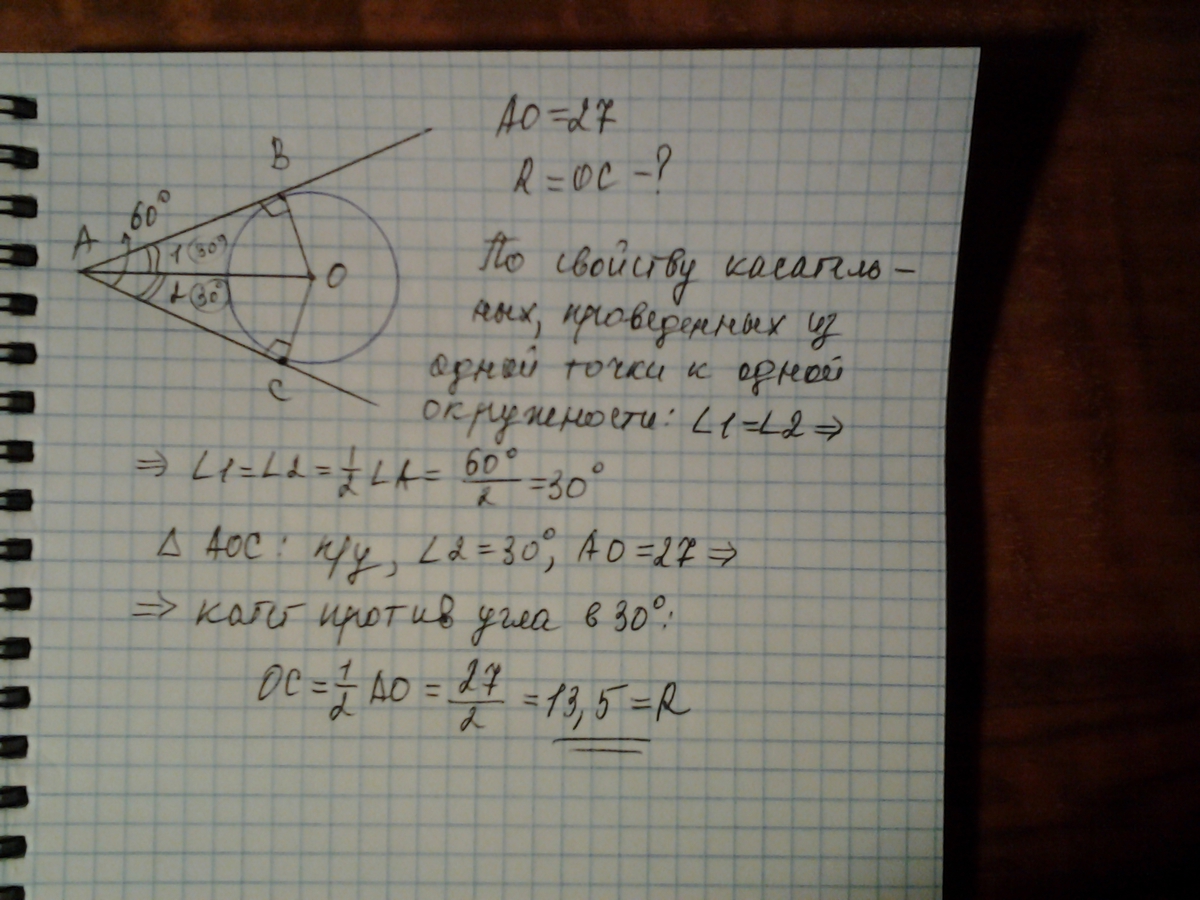 AO = 27
R = OC - ?
B
60°
A
1 (30°)
2 (30°)
O
C
По свойству касатель-
ных, проведенных из
одной точки к одной
окружности: ∠1=∠2 ⇒
⇒ ∠1=∠2 = 1/2 ∠A = 60°/2 = 30°
Δ AOC: п/у, ∠2 = 30°, AO = 27 ⇒
⇒ катет против угла в 30°:
OC = 1/2 AO = 27/2 = 13,5 = R